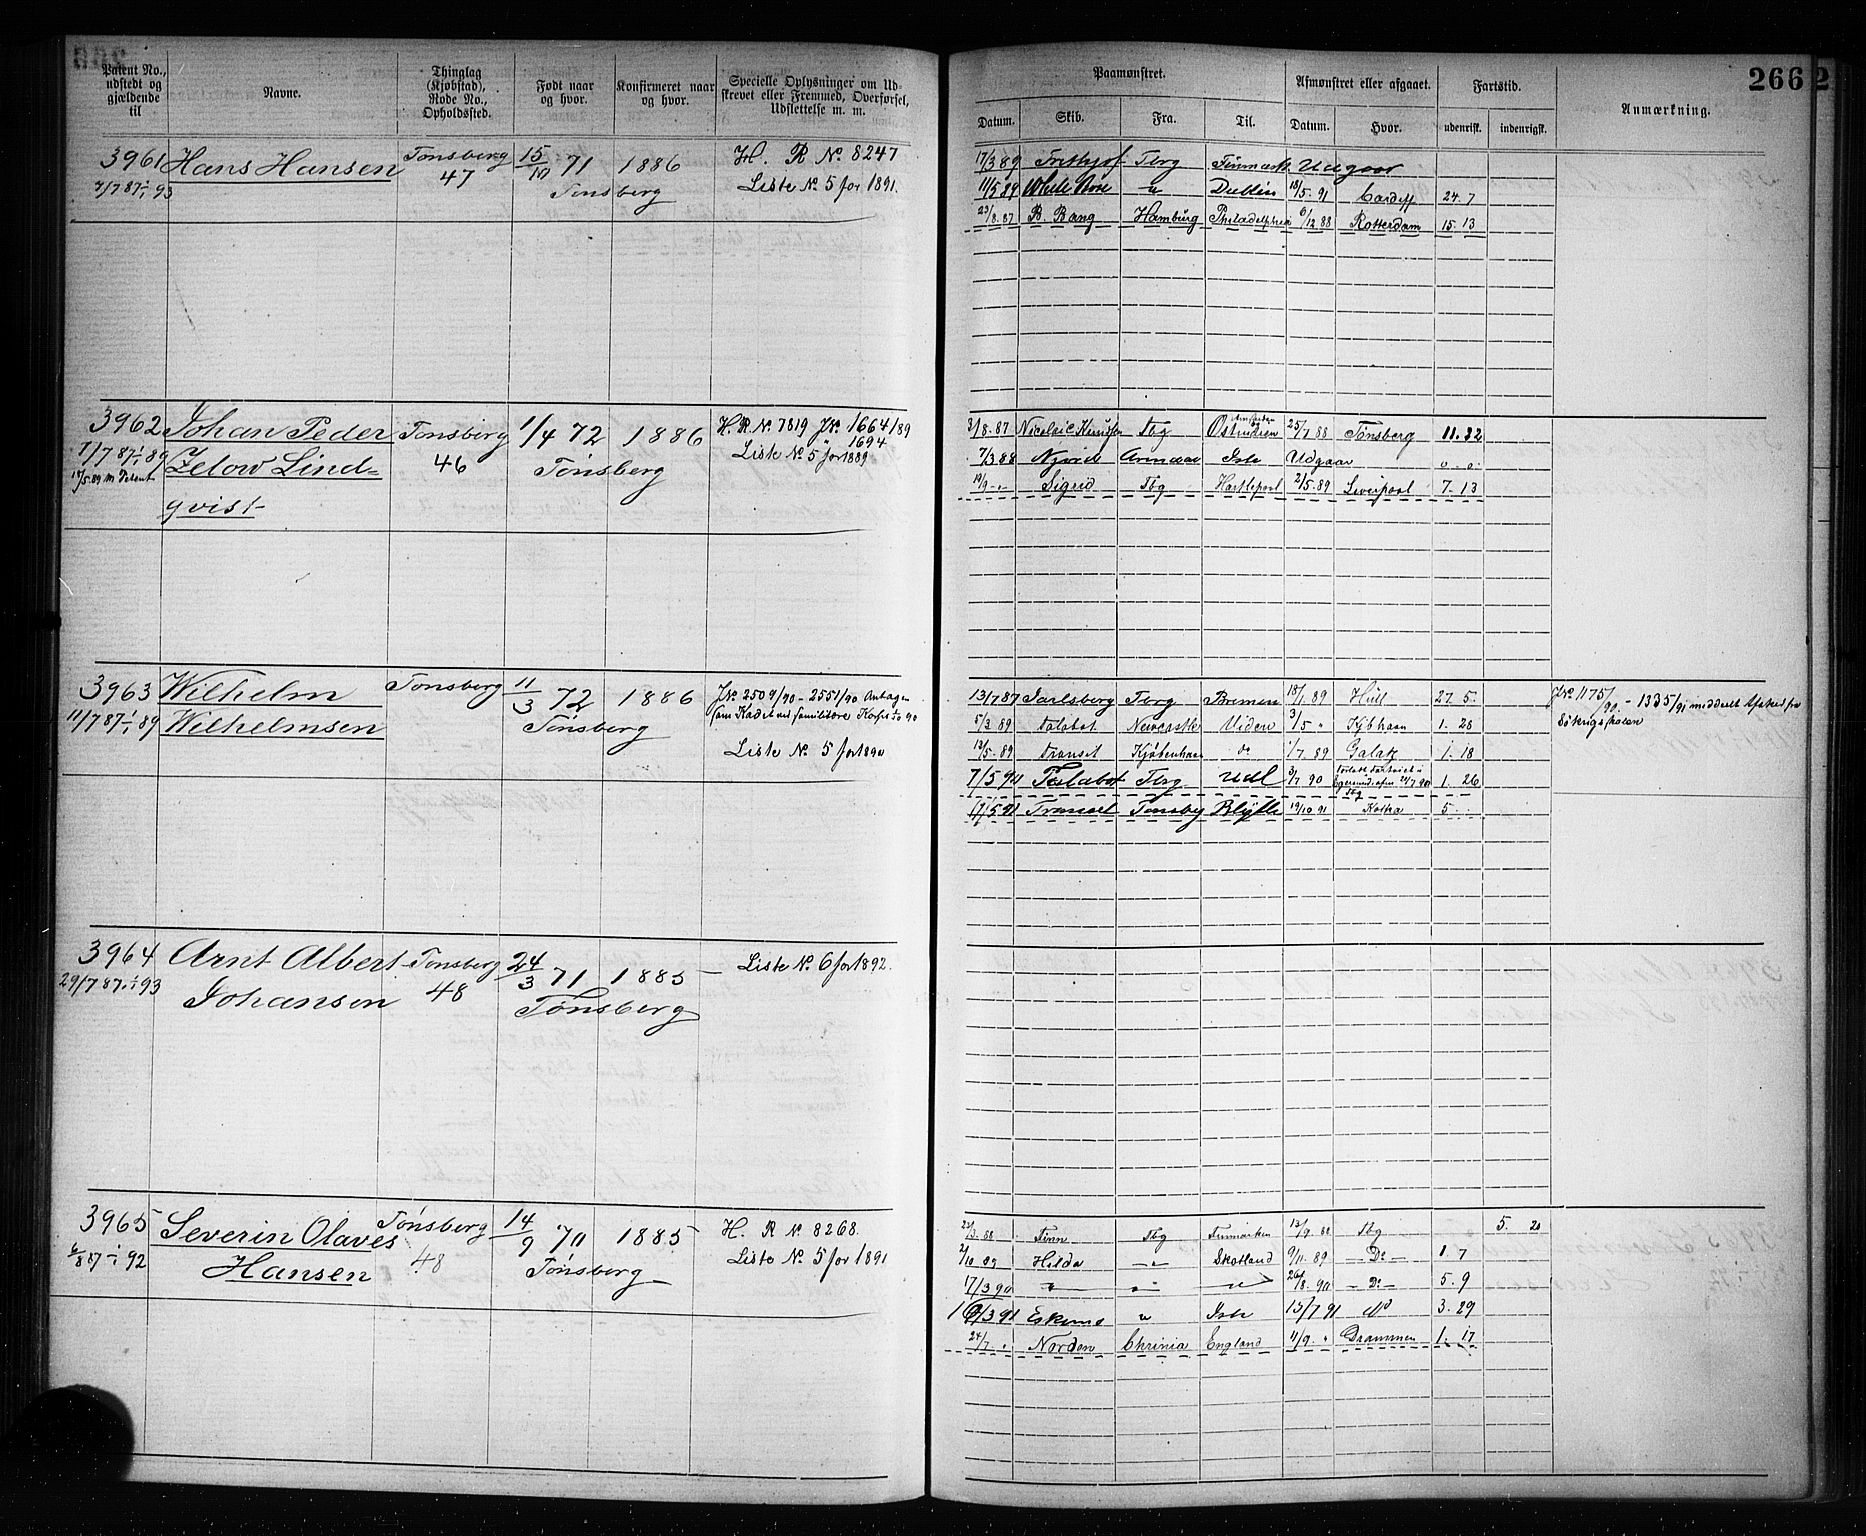 266
Patent No., udstedt og gjældende til
Navne.
Thinglag (Kjøbstad), Rode No., Opholdssted.
Født naar og hvor.
Konfirmeret naar og hvor.
Specielle Oplysninger om Udskrevet eller Fremmed, Overførsel, Udslettelse m. m.
Paamønstret.
Afmønstret eller afgaaet.
Fartstid.
Anmærkning.
Datum. Skib. Fra. Til. Datum. Hvor. udenrigsk. indenrigsk.
3961 Hans Hansen Tønsberg 15/10 71 1886 H. R No 8247
7/7 87 - 1/1 93 47 Tønsberg Liste No 5 for 1891.
17/3 89 Frithjof Tbrg Finmark Udgaar
11/5 89 White Rose " Dublin 18/5. 91 Cardiff 24. 7
23/8. 87 B. Bang Hamburg Philadelphia 6/12 88 Rotterdam 15. 13
3962 Johan Peder Tønsberg 1/4 72 1886 H. R. No 7819 JNo 1664/89
7/7 87 - 1/1 89 Zelow Lind= 46 Tønsberg 1694
17/5. 89 m Patent Liste No 5 for 1889
qvist
3/8. 87 Nicolai Knudsen Tbg Ostindien 25/7 88 Tønsberg 11. 22
7/3 88 Njord Arendal Ish Udgaar " "
Sigrid Tbg Hartlepool 2/5. 89 Liverpool 7. 13
3963 Wilhelm Tønsberg 11/3 72 1886 JNo 2509/90 - 2551/90 Antagen
11/7 87 - 1/1 89 Wilhelmsen Tønsberg som Kadet
Liste No 5 for 1890
13/7 87 Jarlsberg Tbrg Bremen 18/1. 89 Hull 27. 5.
5/3 89 Falabot Newcastle Uiden 3/5 " Kjbhavn 1. 28
12/5. 89 transit Kjøbenhavn do 1/7 89 Galatz 1. 18
7/5 90 Falabot Tbrg Udl 3/7. 90 1. 26
Tbg
11/5 91 Transit Tønsbg Blyth 19/10 91 Kotka 5
JNo 1175/90. - 1335/91 meddelt Afsked fra Søkrigsskolen
3964 Arnt Albert Tønsberg 24/3 71 1885 Liste No 6 for 1892.
29/7 87 - 1/1 93 Johansen 48 Tønsberg
3965 Severin Olaves Tønsberg 14/9 70 1885 H. R No. 8268.
6/8 87 - 1/1 92 Hansen 48 Tønsberg Liste No 5 for 1891
23/3. 88 Finn Tbg Finmarken 12/9. 88 Tbg 5. 20
2/10 89 Hilda " Skotland 9/11. 89 Do 1. 7
17/3 90 " " " 26/8. 90 Do 5. 9
16/3 91 Eskimo " Ish 15/7 91 3. 29
24/7. " Norden Chrinia England 11/9. " Drammen 1. 17